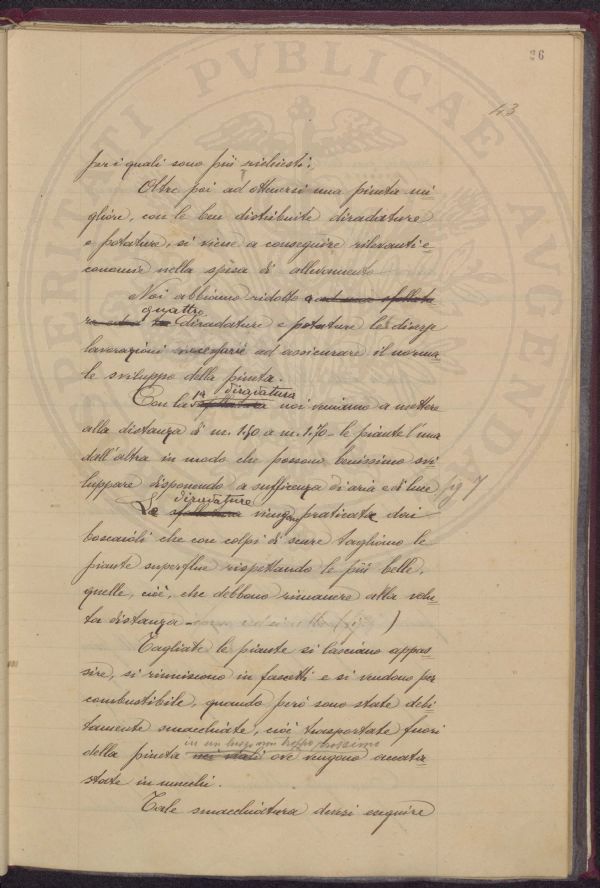 PROSPERITATI PVBLICAE AVGENDAE
36
43
per i quali sono più richiesti.
Oltre poi ad ottenersi una pineta mi
gliore, con le ben distribuite diradature
e potature, si viene a conseguire rilevanti e=
conomie nella spesa di allevamento
Noi abbiamo ridotto a ad una sfollatu
quattro
ra ed a diradature e potature le diverse
lavorazioni necessarie ad assicurare il norma=
le sviluppo della pineta.
1ª diradatura
Con la sfollatura noi veniamo a mettere
alla distanza di m. 1.50 a m. 1.70 - le piante l'una
dall'altra in modo che possono benissimo svi=
luppare disponendo a sufficenza di aria e di luce fig 7
diradature
Le sfollatura vengono praticata dai
boscaioli che con colpi di scure tagliano le
piante superflue rispettando le più belle,
quelle, cioè, che debbono rimanere alla volu=
ta distanza )
Tagliate le piante si lasciano appas=
sire, si riuniscono in fascetti e si vendono per
combustibile, quando però sono state debi=
tamente smacchiate, cioè trasportate fuori
in un luogo non troppo prossimo
della pineta nei viali ove vengono accata=
state in mucchi.
Tale smacchiatura devesi eseguire